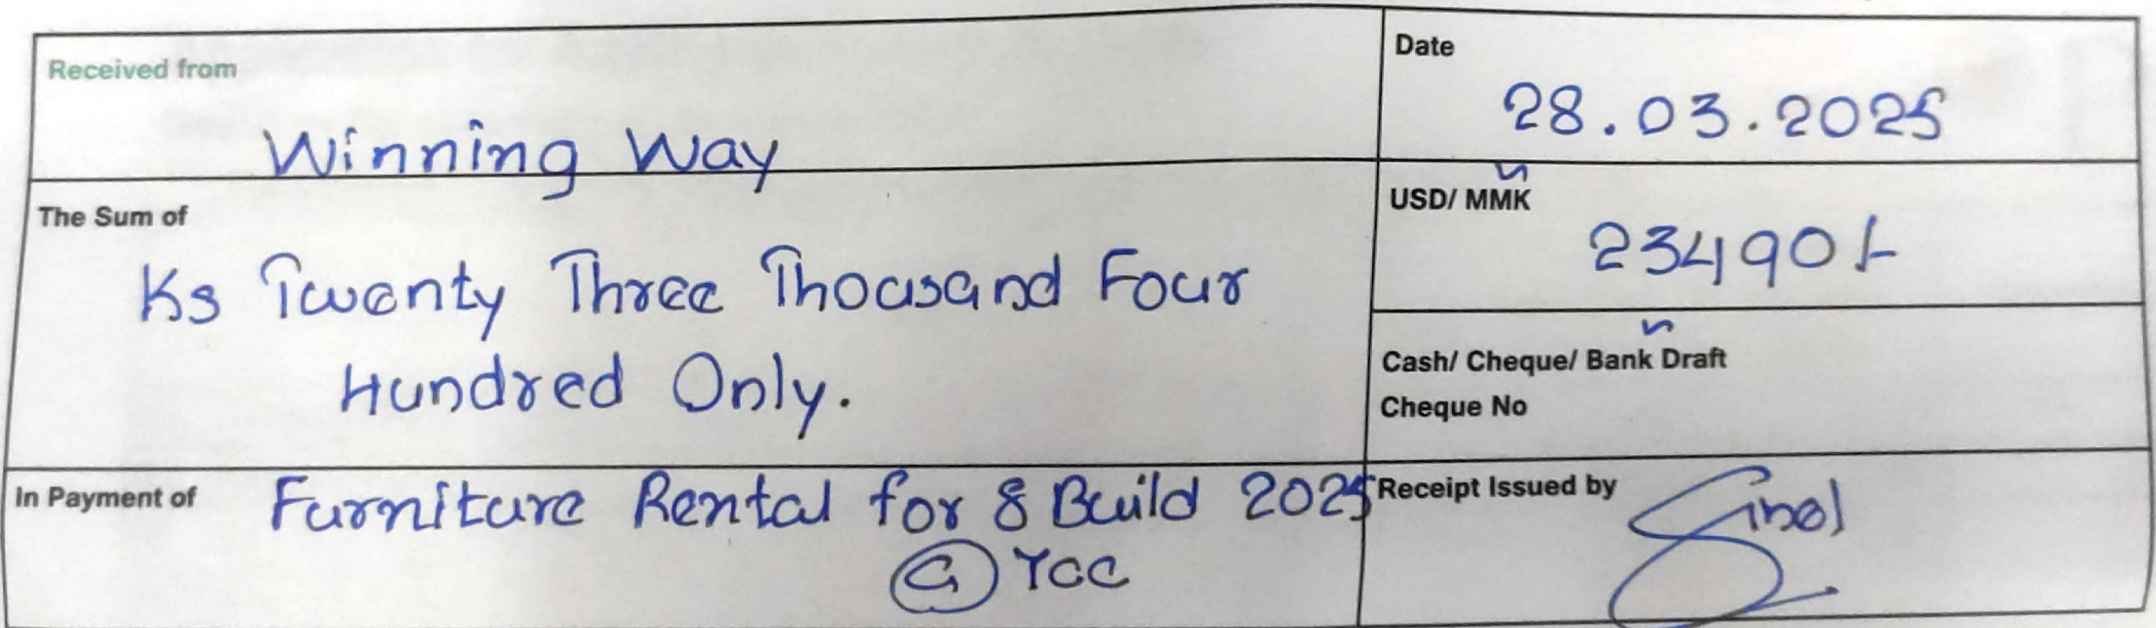 Received from
Winning Way
Date
28.03.2025
The Sum of
Ks Twenty Three Thousand Four
Hundred Only.
USD/ MMK
234901-
Cash/ Cheque/ Bank Draft
Cheque No
In Payment of
Furniture Rental for 8 Build 2025
@ YCC
Receipt Issued by